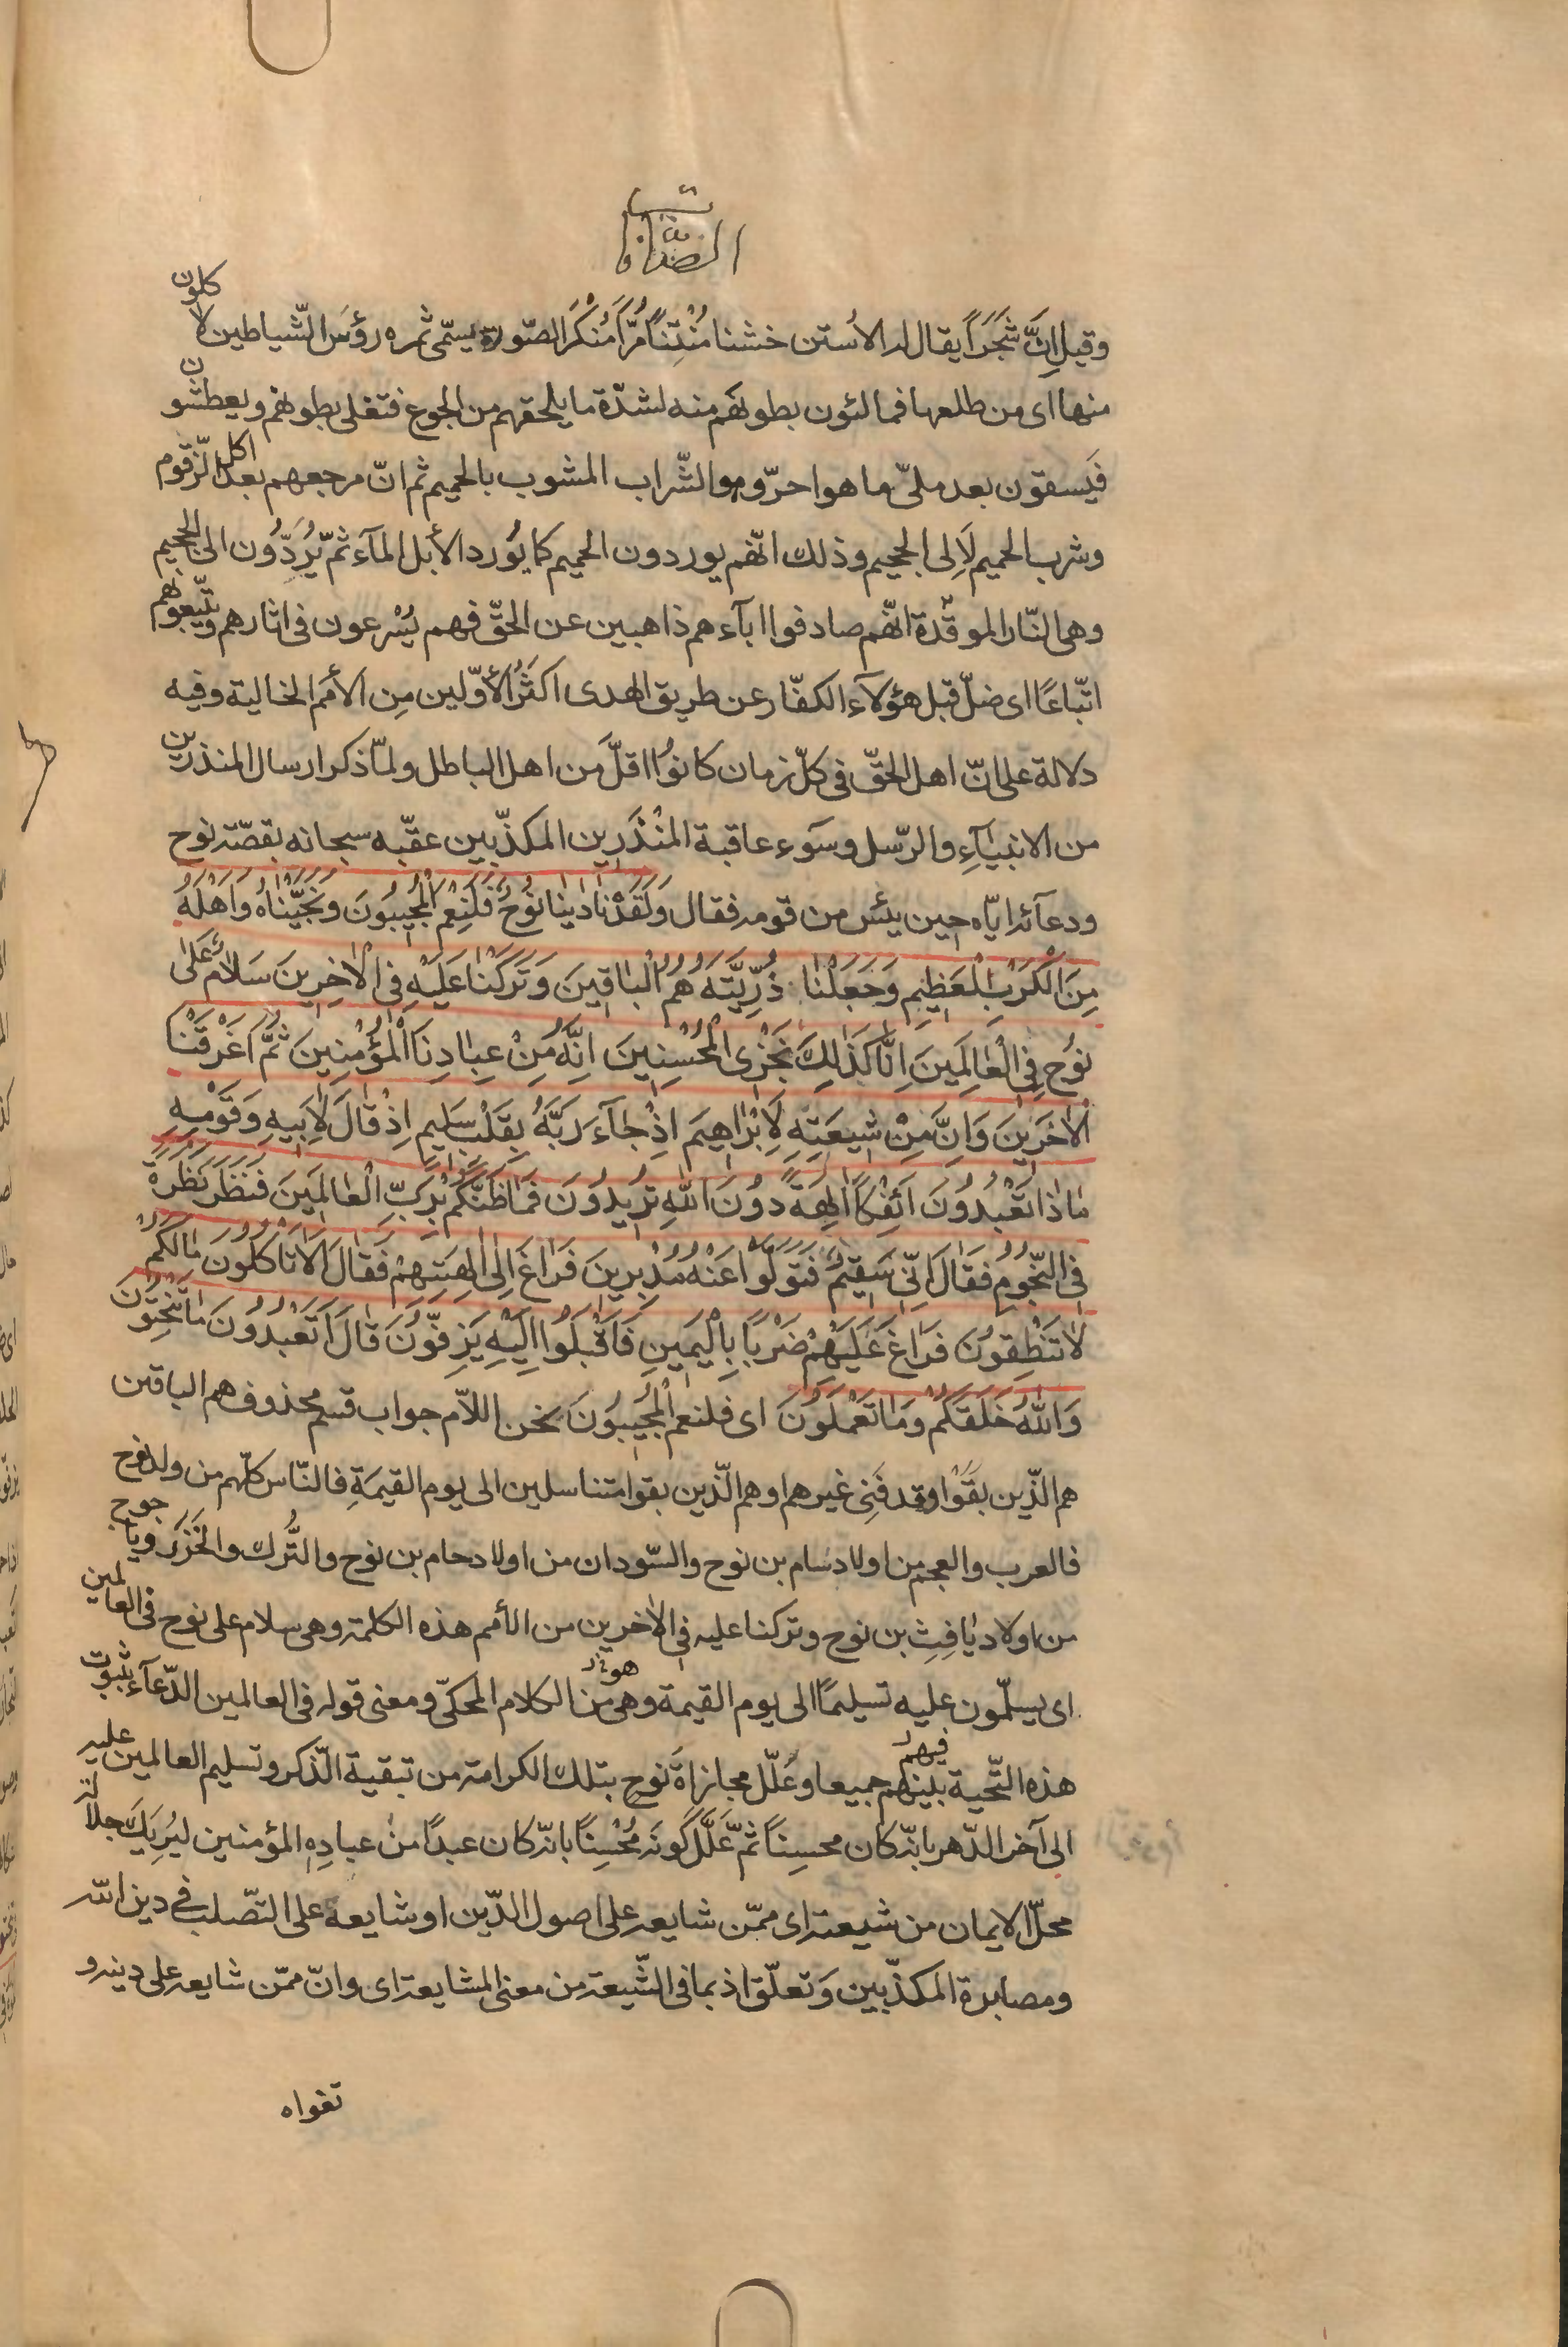 الصافات
وقيل إنَّ شَجَراً يقال له الاُستن خشنا مُنْتِناً مُرّاً مُنكَر الصّورة يسمّى ثمره رؤسَ الشّياطين لاكلون
منها اى من طلعها فمالئون بطونهم منه لشدّة ما يلحقهم من الجوع فتغلى بطونهم ويعطشون
فَيسقون بعد ملىّ ما هو احرّ وهو الشّراب المشوب بالحميم ثم انّ مرجعهم بعد اكل الزّقوم
وشرب الحميم لَاِلى الجحيم وذلك انّهم يوردون الحميم كما يُورد الأبل المآء ثمّ يُرَدُّون الى الجحيم
وهى النّار الموقّدة انّهم صادفوا ابآءهم ذاهبين عن الحقّ فهم يُسْرعون فى اثارهم ويتّبعونهم
اتّباعًا اى ضلّ قبل هؤلآء الكفّار عن طريق الهدى اكثَرُ الأوّلين مِن الأمَم الخالية وفيه
دلالة على انّ اهل الحقّ فى كلّ زمان كانوُا اقلَّ مَن اهل الباطل ولمّا ذكر ارسال المنذرين
من الانبيآءِ والرّسل وسَوء عاقبة المُنْذَرِين المكذّبين عقّبه سبحانه بقصّة نوح
ودعآئه ايّاه حين يئس من قومه فقال وَلَقَدْ نَادٰينا نُوحٌ فَلَنِعْمَ الْمُجٖيبُونَ وَنَجَّيْنٰاهُ وَاَهْلَهُ
مِنَ الْكَرْبِ الْعَظٖيمِ وَجَعَلْنٰا ذُرِّيَّتَهُ هُمُ الْبٰاقٖينَ وَتَرَكْنٰا عَلَيْهِ فِى الْاٰخِرٖينَ سَلٰامٌ عَلٰى
نُوحٍ فِى الْعٰالَمٖينَ اِنّٰا كَذٰلِكَ نَجْزِى الْمُحْسِنٖينَ اِنَّهُ مِنْ عِبٰادِنَا الْمُؤْمِنٖينَ ثُمَّ اَغْرَقْنَا
الْاٰخَرٖينَ وَاِنَّ مِنْ شٖيعَتِهِ لَاِبْرٰاهٖيمَ اِذْ جٰآءَ رَبَّهُ بِقَلْبٍ سَلٖيمٍ اِذْ قٰالَ لِاَبٖيهِ وَقَوْمِهِ
مٰاذٰا تَعْبُدُونَ اَئِفْكاً اٰلِهَةً دُونَ اللّٰهِ تُرٖيدُونَ فَمٰا ظَنُّكُمْ بِرَبِّ الْعٰالَمٖينَ فَنَظَرَ نَظْرَةً
فِى النُّجُومِ فَقٰالَ اِنّٖى سَقٖيمٌ فَتَوَلَّوْا عَنْهُ مُدْبِرٖينَ فَرٰاغَ اِلٰى اٰلِهَتِهِمْ فَقٰالَ اَلٰا تَأكُلُونَ مٰالَكُمْ
لٰا تَنْطِقُونَ فَرٰاغَ عَلَيْهِمْ ضَرْبًا بِالْيَمٖينِ فَاَقْبَلُوا اِلَيْهِ يَزِفُّونَ قٰالَ اَتَعْبُدُونَ مٰا تَنْحِتُونَ
وَاللّٰهُ خَلَقَكُمْ وَمٰا تَعْمَلُونَ اى فلنعم الْمُجٖيبُونَ نحن اللاّم جواب قسم محذوف هم الباقين
هم الّذين بقَوْا وقد فَنِى غيرهم او هم الّذين بقوا متناسلين الى يوم القيمَةِ فالنّاس كلّهم من ولد نوح
فالعرب والعجم من اولاد سَام بن نوح والسّودان من اولاد حام بن نوح والتُّرك والخَزَر ويأجوج
من اولاد يٰافِثِ بن نوح وتركنا عليه فى الاٰخرين من الأمم هذه الكلمة وهى سلام على نوح فى العالمين
اى يسلّمون عليه تسليمًا الى يوم القيمة وهى من الكلام المحكّى ومعنى قوله فى العالمين الدّعآء بثبوت
هذه التّحية بينهم فيهم جميعا وعُلّل مجازاة نوح بتلك الكرامة من تبقية الذّكر وتسليم العالمين عليه
الى آخر الدّهر بانّه كان محسِناً ثمّ عَلَّل كَونَه مُحْسِنًا بانّه كان عبدًا منْ عبادِهِ المؤمنين ليُرِيَك جلالة
محلّ الايمان من شيعته اى ممّن شايعه على اصول الدّين او شايعه على التصّلب فى دين الله
ومصابرة المكذّبين وَتعلّق اذ بما فى الشّيعة من معنى المشايعة اى وانّ ممّن شايعه على دينه و
تقواه